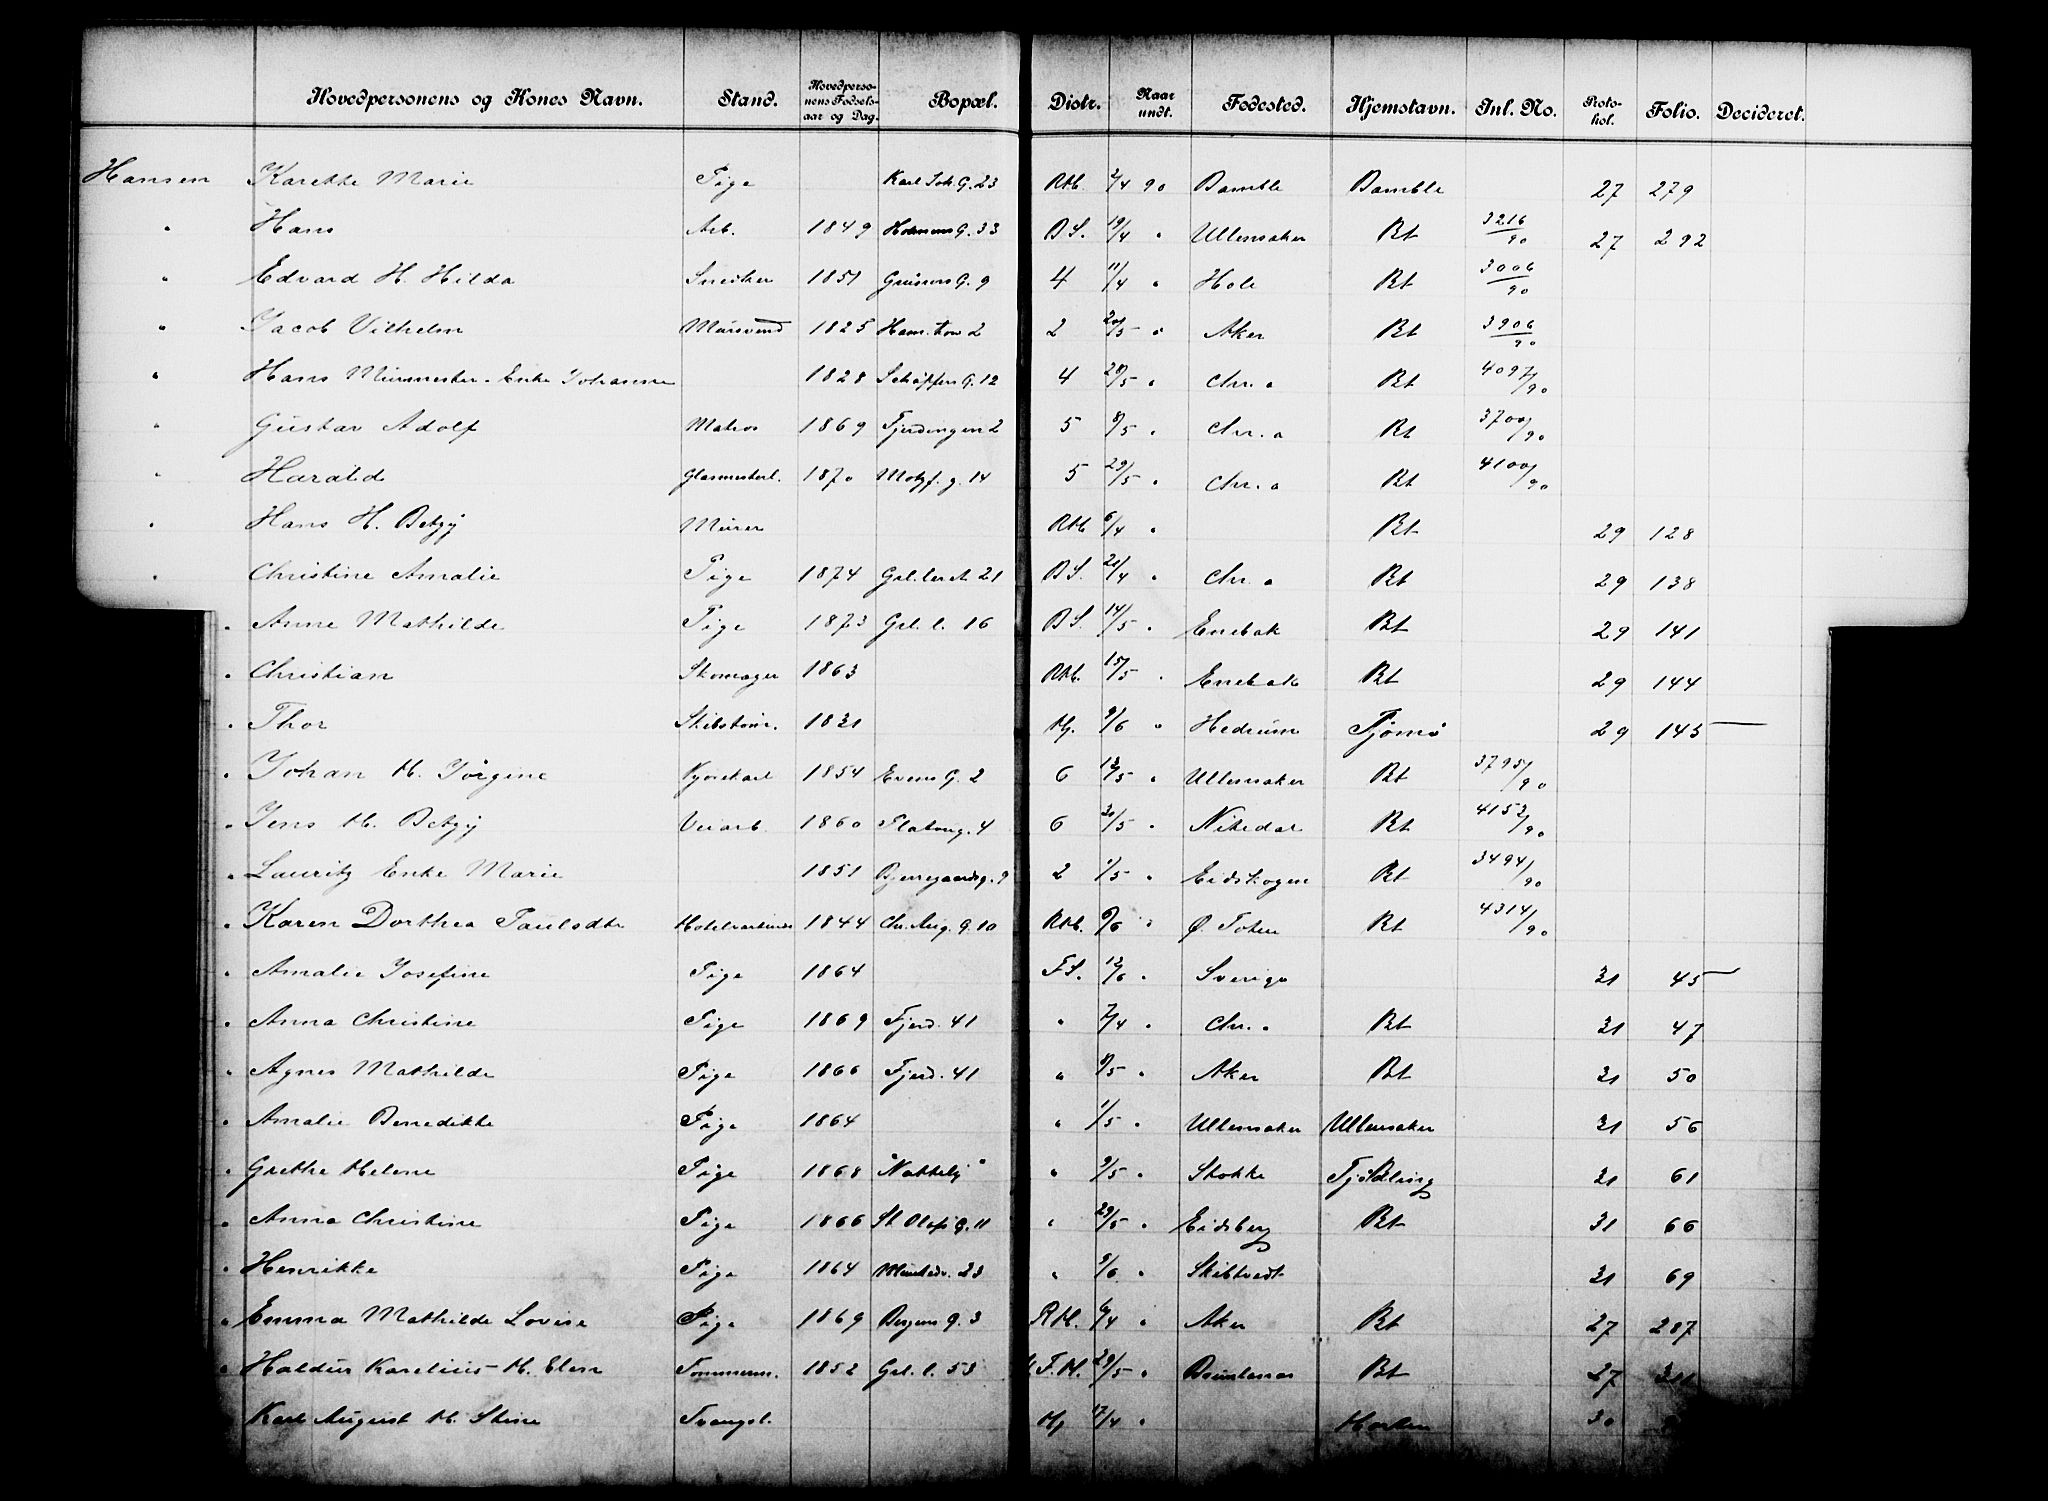 Hovedpersonens og Kones Navn. Stand. Hovedperso-nens Fødsels-aar og Dag. Bopæl. Distr. Naar undt. Fødested. Hjemstavn. Inl. No. Proto-kol. Folio. Decideret.
Hansen Karethe Marie Pige Karl Joh. G. 23 RM. 2/4 90 Bamble Bamble 27 279
" Hans Arb. 1849 G. 33 BS. 19/4 " Ullensaker Bt 3216/90 27 292
" Edvard H. Hilda Snedker 1851 Grüners G. 9 4 11/4 " Hole Bt 3006/90
" Jacob Vilhelm Mursvend 1825 2 2 20/5 " Aker Bt 3906/90
" Hans Murmester. Enke Johanne 1828 Schøffers G. 12 4 28/5 " Chr. a Bt 4097/90
" Gustav Adolf Matros 1869 Fjerdingen 2 5 8/5 " Chr. a Bt 3700/90
" Harald Glasmesterl. 1870 Motzf. g. 14 5 29/5 " Chr. a Bt 4100/90
" Hans H. Betzy Murer RM 6/4 " Bt 29 128
" Christine Amalie Pige 1874 Grl. leret 21 BS. 21/4 " Chr. a Bt 29 138
" Anne Mathilde Pige 1873 Grl. l. 16 BS. 14/5 " Enebak Bt 29 141
" Christian Skomager 1863 RM. 15/5 " Enebak Bt 29 144
" Thor Skibstøm. 1831 Hj. 9/6 " Hedrum Tjømø 29 145
" Johan H. Jørgine Kjørekarl 1854 Evens G. 2 6 12/5 " Ullensaker Bt 3795/90
" Jens H. Betzy Veiarb 1860 Platoug. 4 6 31/5 " Nitedal Bt 4152/90
" Lauritz Enke Marie 1851 Bjerregaardsg. 9 2 1/5 " Eidskogen Bt 3494/90
" Karen Dorthea Paulsdtr 1844 Chr. Aug. G. 10 RM. 6/6 " Ø. Toten Bt 4314/90
" Amalie Josefine Pige 1864 FS. 12/6 " Sverige 31 45
" Anna Christine Pige 1869 Fjerd. 41 " 7/4 " Chr. a Bt 31 47
" Agnes Mathilde Pige 1866 Fjerd. 41 " 8/5 " Aker Bt 31 50
" Amalie Benedikte Pige 1864 " 1/5 " Ullensaker Ullensaker 31 56
" Grethe Helene Pige 1868 " 9/5 " Stokke Tjølling 31 61
" Anna Christine Pige 1866 St Olafs G. 11 " 29/5 " Eidsberg Bt 31 66
" Henrikke Pige 1864 Munkedv. 23 " 9/6 " Skibtvedt 31 69
" Emma Mathilde Lovise Pige 1869 Bergens G. 3 RM. 6/4 " Aker Bt 27 287
" Haldur Karelius H. Elen Tømmerm. 1852 Grl. l. 53 F. H. 29/5 " Brunlanes Bt 27 311
Karl August H. Stine Tvangsl. Hj 17/4 " Horten 30